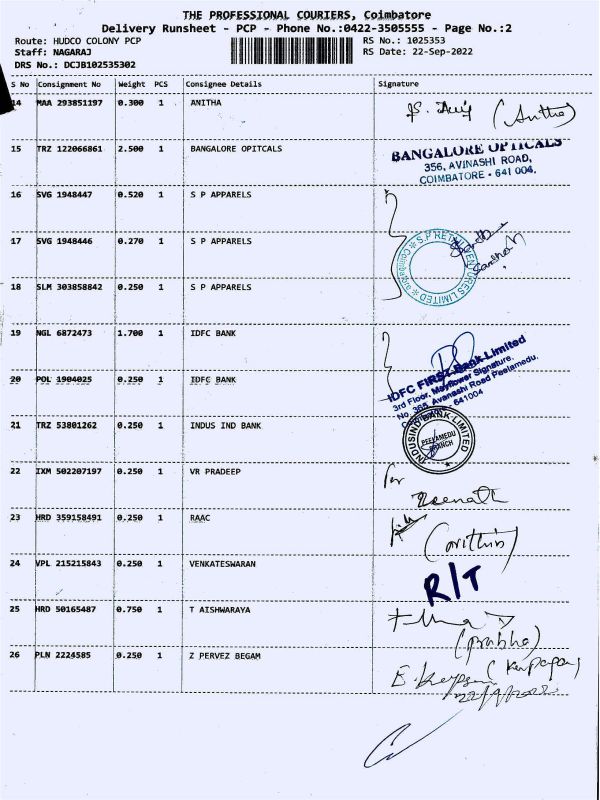 THE PROFESSIONAL COURIERS, Coimbatore
Delivery Runsheet - PCP - Phone No.:0422-3505555 - Page No.:2
Route: HUDCO COLONY PCP
Staff: NAGARAJ
DRS No.: DCJB102535302
RS No.: 1025353
RS Date: 22-Sep-2022
S No Consignment No Weight PCS Consignee Details Signature
14 MAA 293851197 0.300 1 ANITHA (Anitha)
15 TRZ 122066861 2.500 1 BANGALORE OPITCALS
BANGALORE OPTICALS
356, AVINASHI ROAD,
COIMBATORE - 641 004.
16 SVG 1948447 0.520 1 S P APPARELS
17 SVG 1948446 0.270 1 S P APPARELS
S.P RETAIL VENTURES LIMITED
Coimbatore
18 SLM 303858842 0.250 1 S P APPARELS
19 NGL 6872473 1.700 1 IDFC BANK
IDFC FIRST Bank Limited
3rd Floor, Mayflower Signature,
No. 365, Avanashi Road Peelamedu,
Coimbatore - 641004
20 POL 1904025 0.250 1 IDFC BANK
21 TRZ 53801262 0.250 1 INDUS IND BANK
INDUSIND BANK LIMITED
PEELAMEDU
BRANCH
22 IXM 502207197 0.250 1 VR PRADEEP
for
23 HRD 359158491 0.250 1 RAAC
24 VPL 215215843 0.250 1 VENKATESWARAN R/T
25 HRD 50165487 0.750 1 T AISHWARAYA
(prabha)
26 PLN 2224585 0.250 1 Z PERVEZ BEGAM
22/9/2022